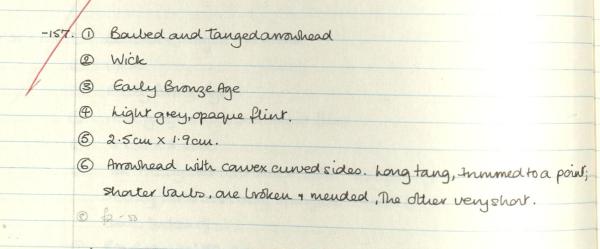 -157. ① Barbed and Tanged arrowhead
② Wick
③ Early Bronze Age
④ Light grey, opaque flint.
⑤ 2.5cm x 1.9cm.
⑥ Arrowhead with convex curved sides. Long tang, trimmed to a point;
shorter barbs, one broken & mended, The other very short.